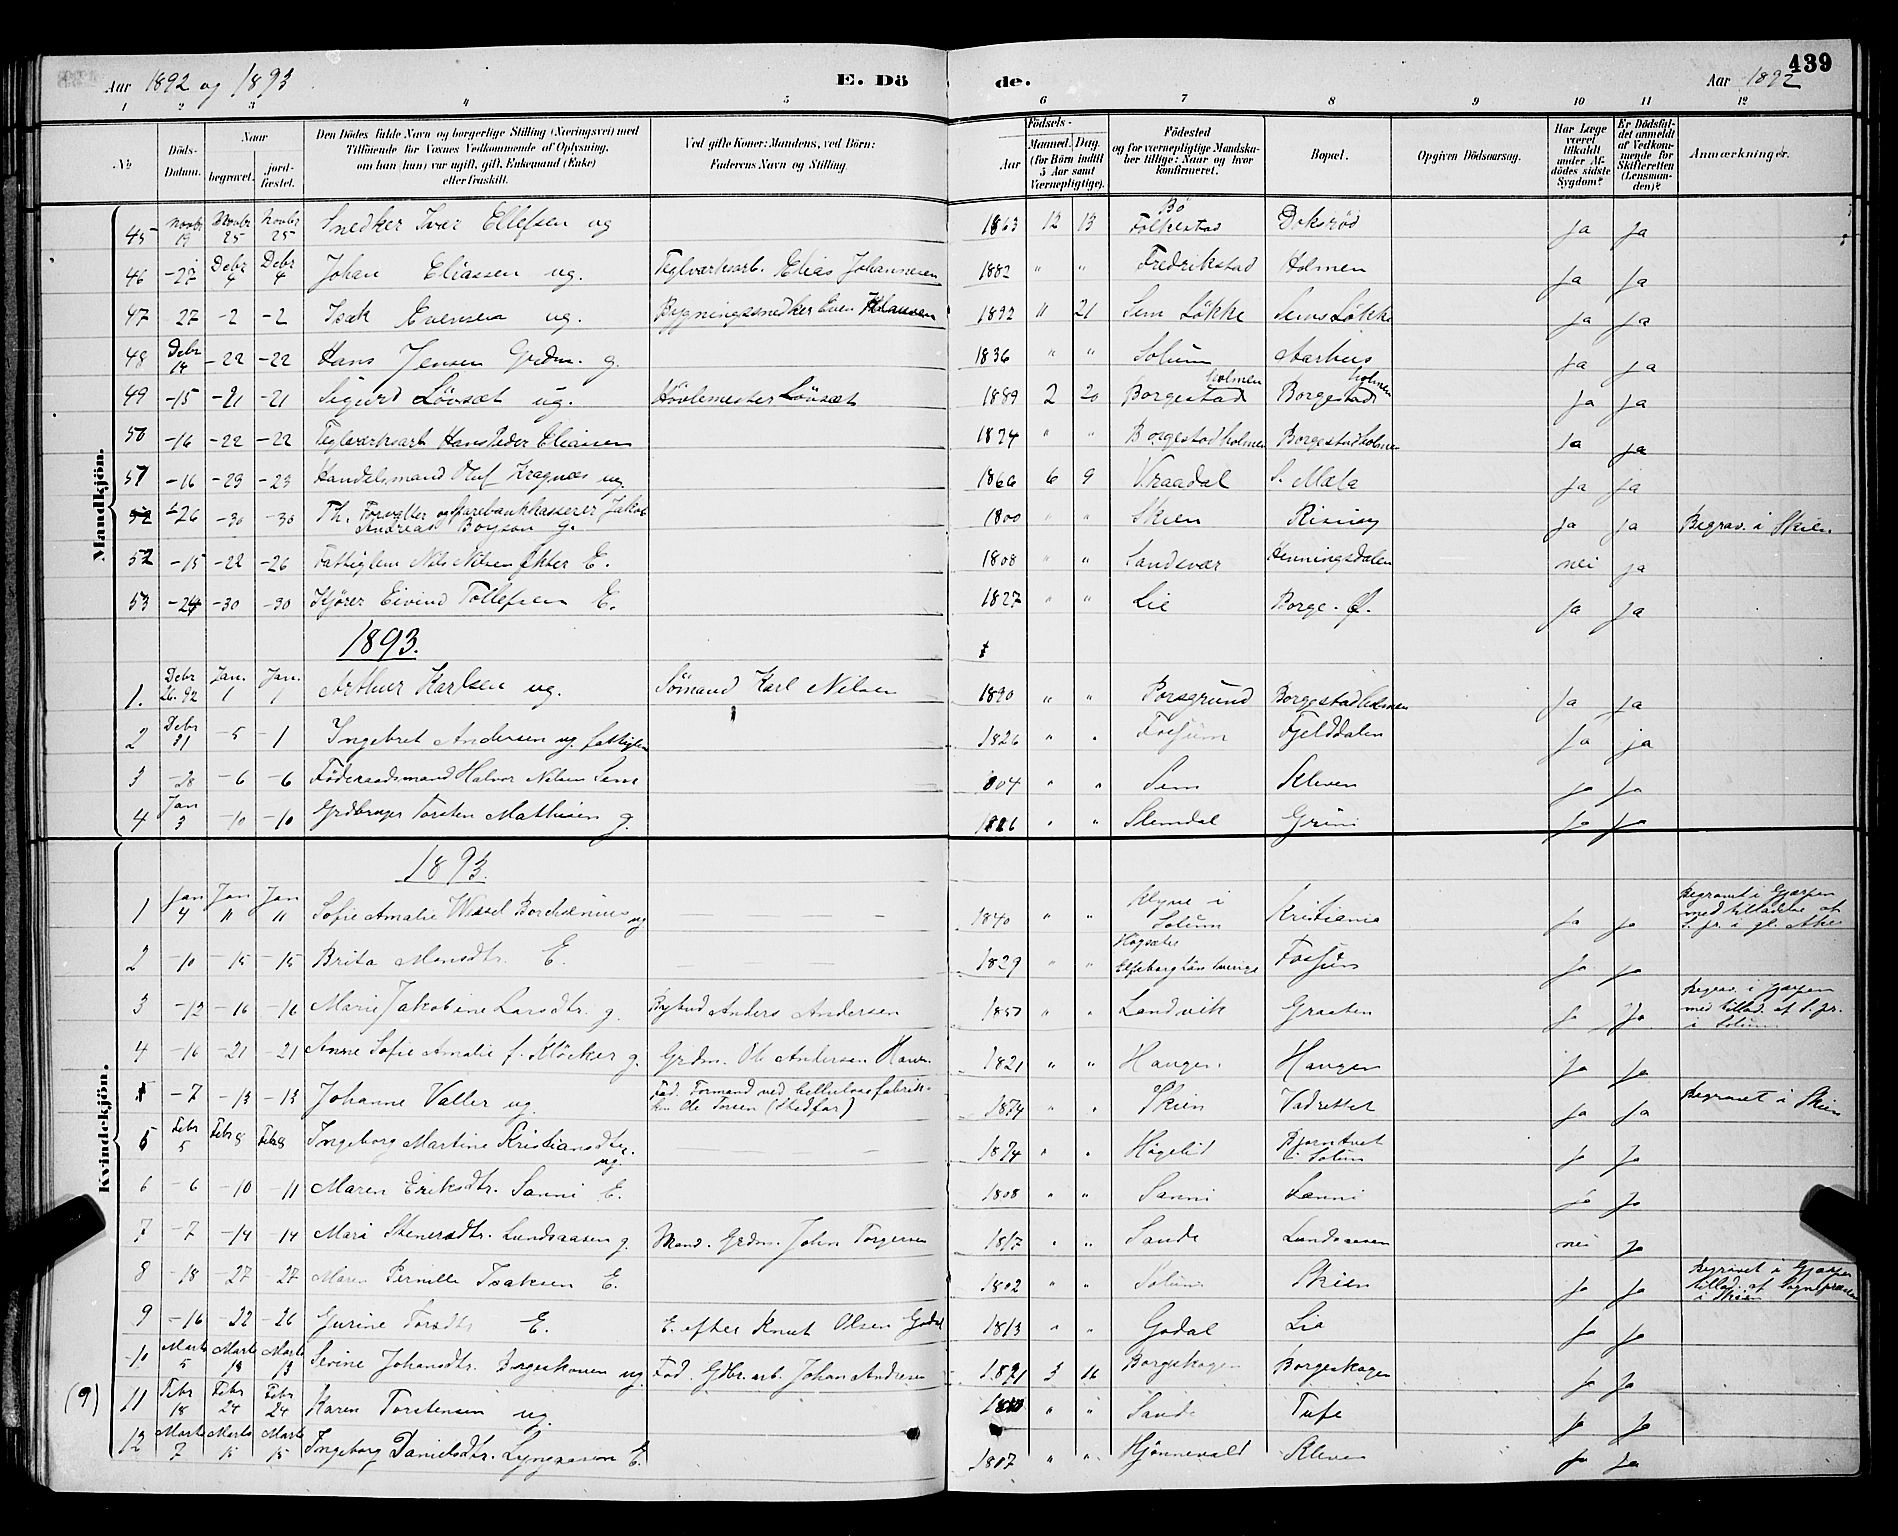 439
Aar 1892 og 1893 E. Dö de. Aar 1892
1 2 3 4 5 6 7 8 9 10 11 12
№ Döds-Datum. Naar begravet. jordfæstet. Den Dödes fulde Navn og borgerlige Stilling (Næringsvei) med Tilföiende for Voxnes Vedkommende af Oplysning, om han (hun) var ugift, gift, Enkemand (Enke) eller fraskilt. Ved gifte Koner: Mandens, ved Börn: Faderens Navn og Stilling. Födsels- Aar Maaned. Dag. (for Börn indtil 5 Aar samt Værnepligtige). Födested og for værnepligtige Mandskaber tillige: Naar og hvor konfirmeret. Bopæl. Opgiven Dödsaarsag. Har Læge været tilkaldt under Afdödes sidste Sygdom? Er Dödsfaldet anmeldt af Vedkommende for Skifteretten (Lensmanden)? Anmærkninger.
Mandkjön.
45 Novbr 19 Novbr 25 Novbr 25 Snedker Iver Ellefsen ug 1863 12 13 Bö Folkestad Doksrød Ja Ja
46 -27 Debr 4 Debr 4 Johan Eliassen ug. Teglværksarb. Elias Johannesen 1882 " " Fredrikstad Holmen Ja Ja
47 27 -2 -2 Isak Evensen ug. Bygningssnedker Even 1892 11 21 Sem Løkke Sems Løkke Ja Ja
48 Debr 14 -22 -22 Hans Jensen Grdm. g. 1836 " " Solum Aarhus Ja Ja
49 -15 -21 -21 Sigurd Lövsæt ug. Hövlemester Lövsæt 1889 2 20 Borgestadholmen Borgestadholmen Ja Ja
50 -16 -22 -22 Teglværksarb Hans Peder Eliassen 1874 " " Borgestadholmen Borgestadholmen Ja Ja
51 -16 -23 -23 Handelsmand Oluf Kragnæs ug. 1866 6 9 Vraadal S. Mæla Ja Ja
52 -26 -30 -30 Th. Forvalter og Sparebankkasserer Jakob Andreas Boyson g. 1800 " Skien Rising Ja Ja Begrav. i Skien.
52 -15 -22 -26 Fattiglem Nils Nilsen Økter E. 1808 " " Sandsvær Henningsdalen nei ja
53 -24 -30 -30 Kjører Eivind Tollefsen E. 1827 " " Lie Borge. Ø. Ja Ja
1893.
1. Debr 26. 92 Jan. 1 Jan. 1 Arthur Karlsen ug. Sømand Karl Nilsen 1890 " " Porsgrund Borgestadholmen Ja Ja
2 Debr 31 -5 -1 Ingebret Andersen ug. fattiglem 1826 " " Fossum Fjelddalen Ja ja
3 -28 -6 -6 Föderaadsmand Halvor Nilsen Sem 804 " " Sem Kleven Ja Ja
4 Jan 3 -10 -10 Grdbruger Torsten Mathisen g. 1826 " " Slemdal Grini Ja Ja
Kvindekjön.
1893.
1 Jan 4 Jan 11 Jan 11 Sofie Amalie Wessel Borchsenius ug — — — 1840 " " Klyve i Solum Kristiania Ja Ja Begravet i Gjerpen med tilladelse af S. pr. i gl. Aker
2 -10 -15 -15 Brita Monsdtr. E. — — — 1829 " " Högsäter Elfsborg län Sverige Fossum Ja Ja
3 -12 -16 -16 Marie Jakobine Larsdtr. g. Anders Andersen 1857 " " Landvik Graaten Ja Ja Begrav. i Gjerpen med tillad. af S. pr. i Solum
4 -16 -21 -21 Anne Sofie Amalie f. Klöcker g. Grdm. Ole Andersen 1821 " " Haugen Haugen Ja Ja
5 -7 -13 -13 Johanne Valler ug. Fad. Formand ved Cellulosefabriken Ole Torsen (Stedfar) 1874 " " Skien Vadrettet Ja Ja Begravet i Skien
5 Febr 5 Febr 8 Febr 8 Ingeborg Martine Kristiansdtr. ug. — — — 1874 " " Høgelid Bjørntvet i Solum Ja Ja
6 -6 -10 -11 Maren Eriksdtr. Sanni E. 1808 " " Sanni Sanni Ja Ja
7 -7 -14 -14 Mari Stenersdtr. Lundsaasen g. Mand. Grdm. John Torgersen 1817 " " Sande Lundsaasen nei Ja
8 -18 -27 -27 Maren Pernille Isaksen E. 1802 " " Solum Skien Ja Ja Begravet i Gjerpen tillad. af Sognepræsten i Skien
9 -16 -22 -26 Gurine Torsdtr E. E. efter Knut Olsen Godal 1813 " " Godal Lie Ja Ja
10 Marts 5 Marts 13 Marts 13 Sevine Johansdtr. ug. Fad. Gdbr.arb. Johan Andresen 1891 3 16 Borgeskogen Borgeskogen Ja Ja
(9) 11 Febr 18 Febr 24 Febr 24 Karen Torstensen ug. " " Sande Tufte Ja Ja
12 Marts 7 Marts 15 Marts 15 Ingeborg Danielsdtr. E. 1807 " " Hjønnevald Kleven Ja Ja